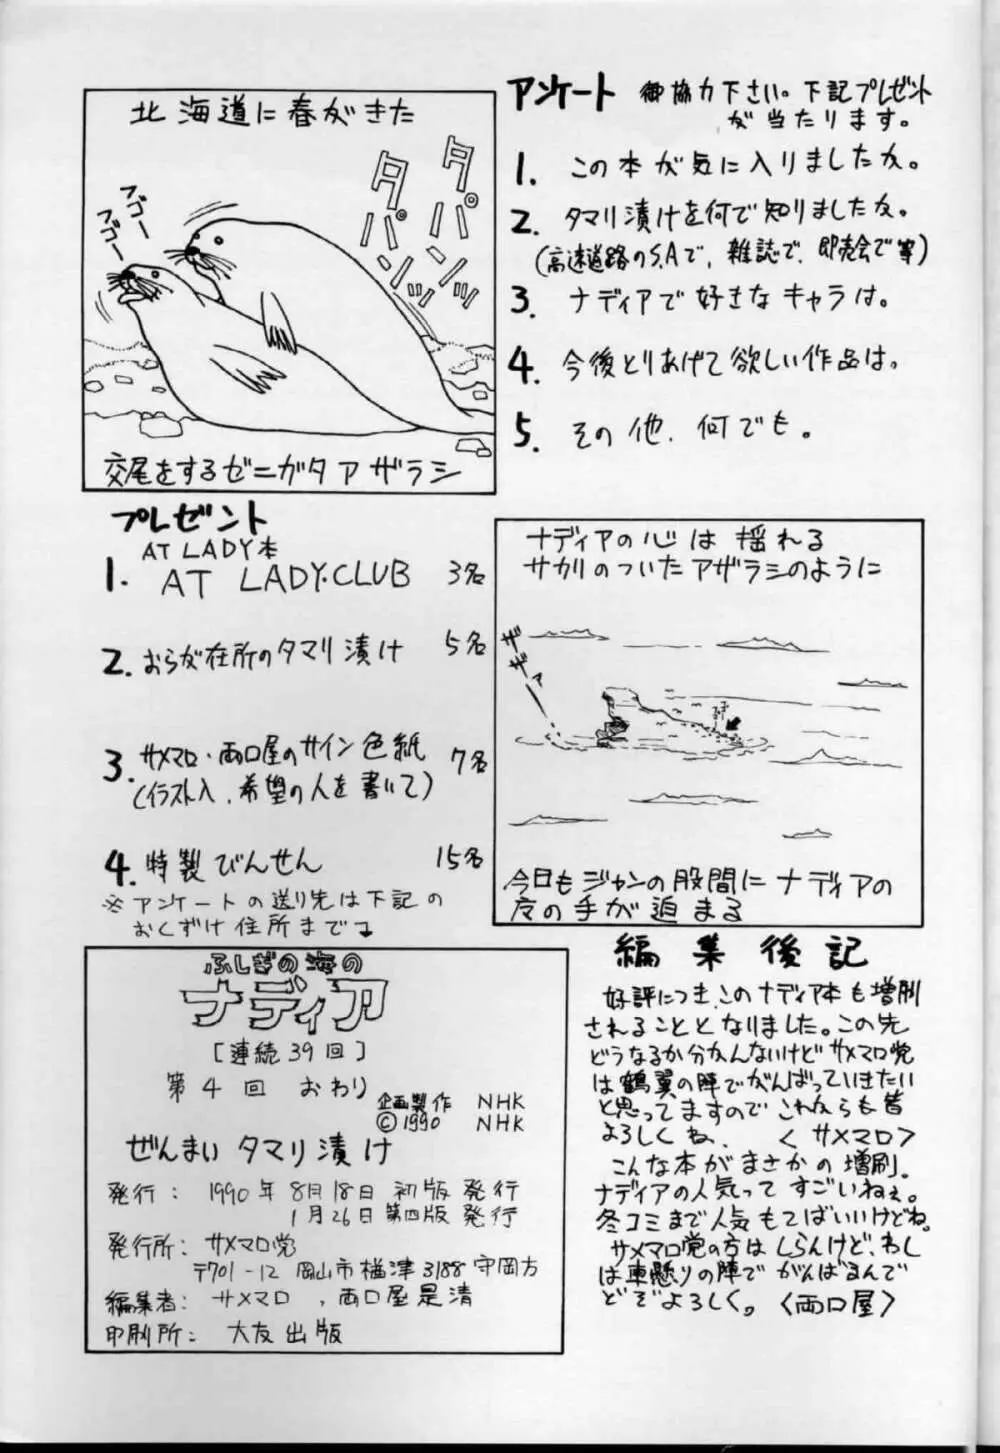 北海道に春がきた
タパンッ
タパンッ
フゴー
フゴー
交尾をするゼニガタアザラシ
アンケート 御協力下さい。下記プレゼント
が当たります。
1. この本が気に入りましたか。
2. タマリ漬けを何で知りましたか。
(高速道路のS.Aで、雑誌で、即売会で等)
3. ナディアで好きなキャラは。
4. 今後とりあげて欲しい作品は。
5. その他、何でも。
プレゼント
AT LADY本
1. AT LADY.CLUB 3名
2. おらが在所のタマリ漬け 5名
3. サメマロ・両口屋のサイン色紙 7名
(イラスト入、希望の人を書いて)
4. 特製びんせん 15名
※アンケートの送り先は下記の
おくずけ住所まで
ナディアの心は揺れる
サカリのついたアザラシのように
ザザァ
今日もジャンの股間にナディアの
の手が迫まる
ふしぎの海の
ナディア
[連続39回]
第4回 おわり
企画製作 NHK
©1990 NHK
ぜんまいタマリ漬け
発行: 1990年8月18日 初版発行
1月26日第四版発行
発行所: サメマロ党
〒701-12 岡山市楢津3188 守岡方
編集者: サメマロ、両口屋是清
印刷所: 大友出版
編集後記
好評につき、このナディア本も増刷
されることとなりました。この先
どうなるか分かんないけどサメマロ党
は鶴翼の陣でがんばっていきたい
と思ってますのでこれからも皆
よろしくね、 <サメマロ>
こんな本がまさかの増刷。
ナディアの人気ってすごいねぇ。
冬コミまで人気もてばいいけどね。
サメマロ党の方はしらんけど、わし
は車懸りの陣でがんばるんで
どぞよろしく。<両口屋>